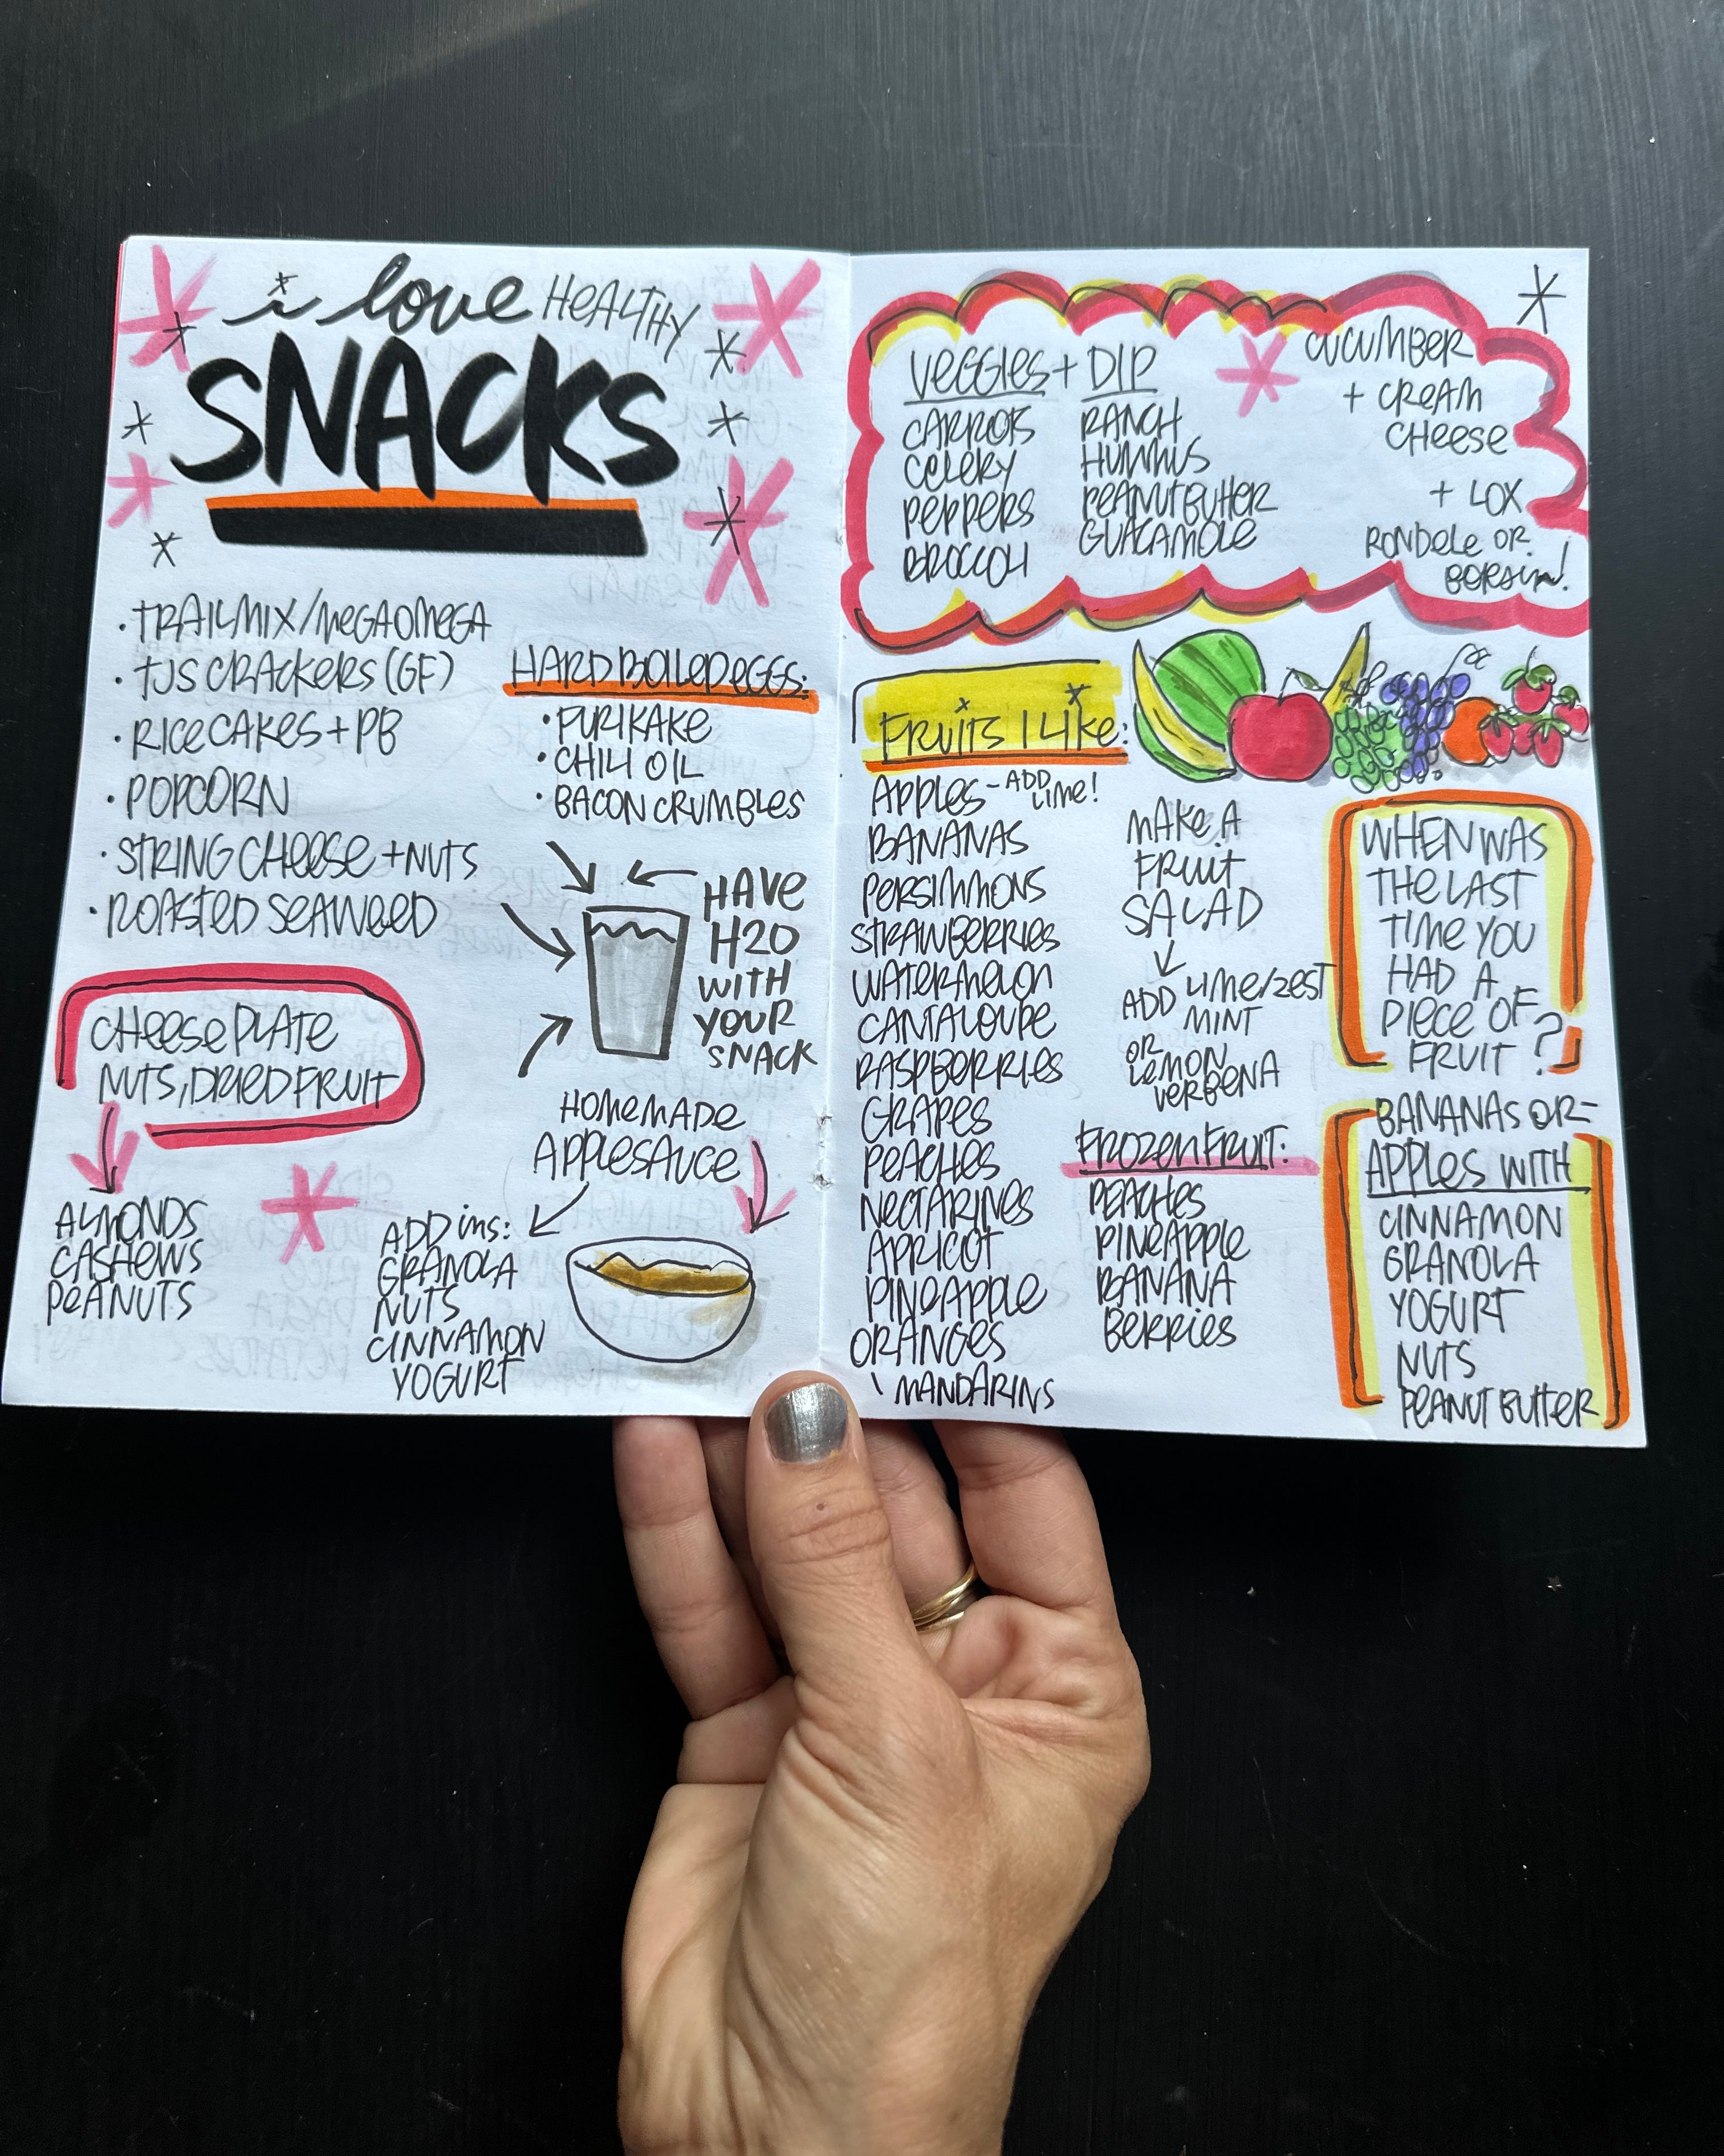 i love HEALTHY
SNACKS
• TRAIL MIX/MEGAOMEGA
• TJS CRACKERS (GF)
• RICE CAKES + PB
• POPCORN
• STRING CHEESE + NUTS
• ROASTED SEAWEED
HARD BOILED EGGS:
• FURIKAKE
• CHILI OIL
• BACON CRUMBLES
HAVE
H2O
WITH
YOUR
SNACK
CHEESE PLATE
NUTS, DRIED FRUIT
ALMONDS
CASHEWS
PEANUTS
HOMEMADE
APPLESAUCE
ADD ins:
GRANOLA
NUTS
CINNAMON
YOGURT
VEGGIES + DIP
CARROTS
CELERY
PEPPERS
BROCCOLI
RANCH
HUMMUS
PEANUT BUTTER
GUACAMOLE
CUCUMBER
+ CREAM
CHEESE
+ LOX
RONDELE OR
BORSIN!
FRUITS I LIKE:
APPLES - ADD
LIME!
BANANAS
PERSIMMONS
STRAWBERRIES
WATERMELON
CANTALOUPE
RASPBERRIES
GRAPES
PEACHES
NECTARINES
APRICOT
PINEAPPLE
ORANGES
\ MANDARINS
MAKE A
FRUIT
SALAD
ADD LIME/ZEST
MINT
OR
LEMON
VERBENA
FROZEN FRUIT:
PEACHES
PINEAPPLE
BANANA
BERRIES
WHEN WAS
THE LAST
TIME YOU
HAD A
PIECE OF
FRUIT?
BANANAS OR-
APPLES WITH
CINNAMON
GRANOLA
YOGURT
NUTS
PEANUT BUTTER